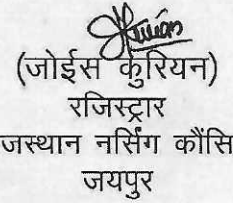 (जोईस कुरियन)
रजिस्ट्रार
जस्थान नर्सिंग कौंसि
जयपुर